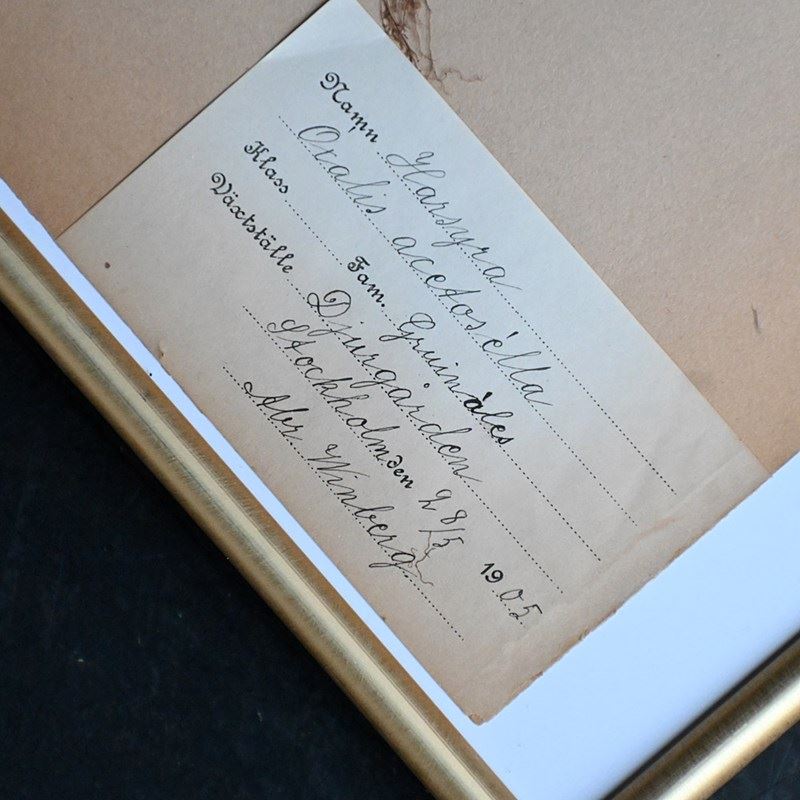 Namn Harsyra
Oxalis acetosélla
Klass Fam. Gruináles
Växtställe Djurgården
Stockholm den 28/5 1905
Abr Winberg